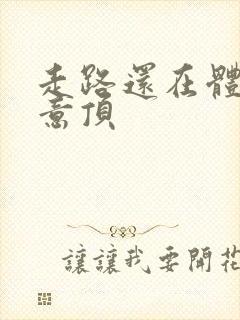 走路還在體
意頂
讓讓我要開花